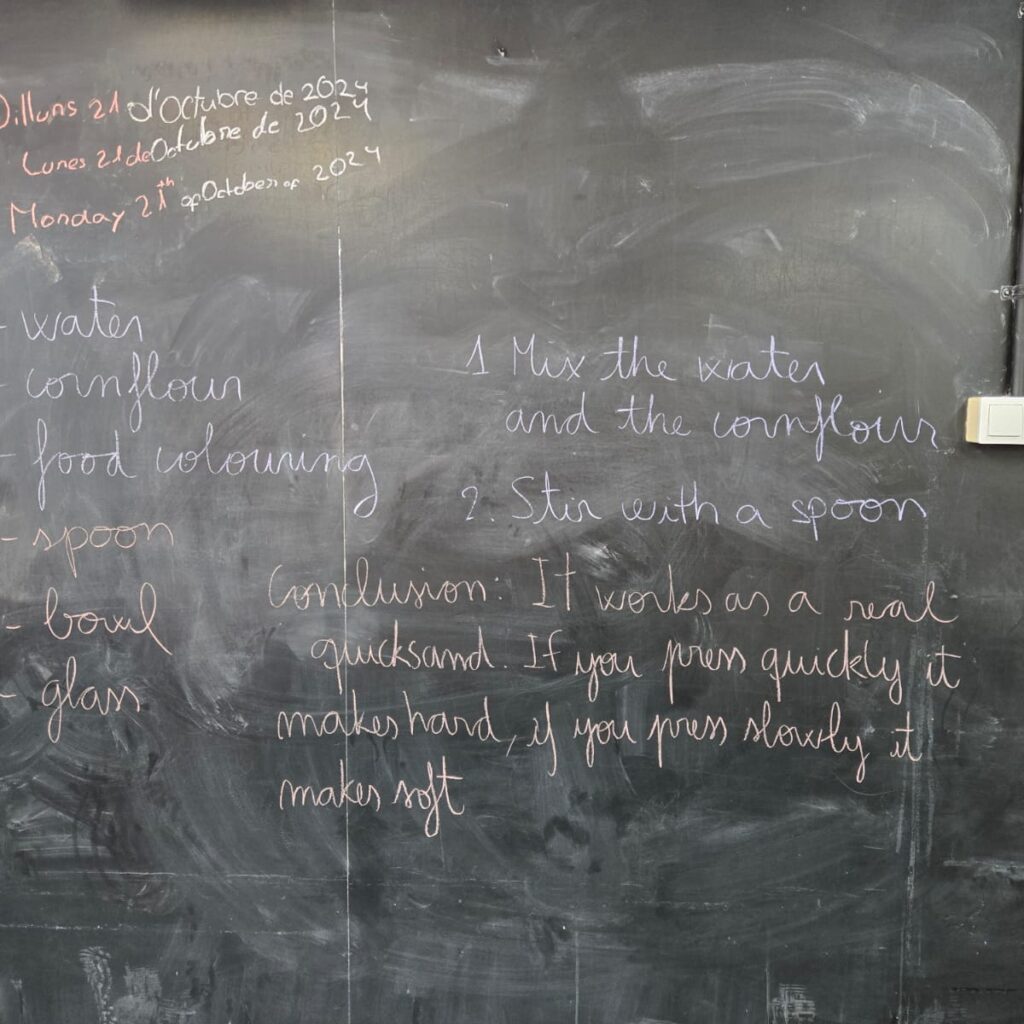 Dilluns 21 d'Octubre de 2024
Lunes 21 de Octubre de 2024
Monday 21th of October of 2024
- water
- cornflour
- food colouring
- spoon
- bowl
- glass
1 Mix the water
and the cornflour
2. Stir with a spoon
Conclusion: It works as a real
quicksand. If you press quickly it
makes hard, if you press slowly it
makes soft